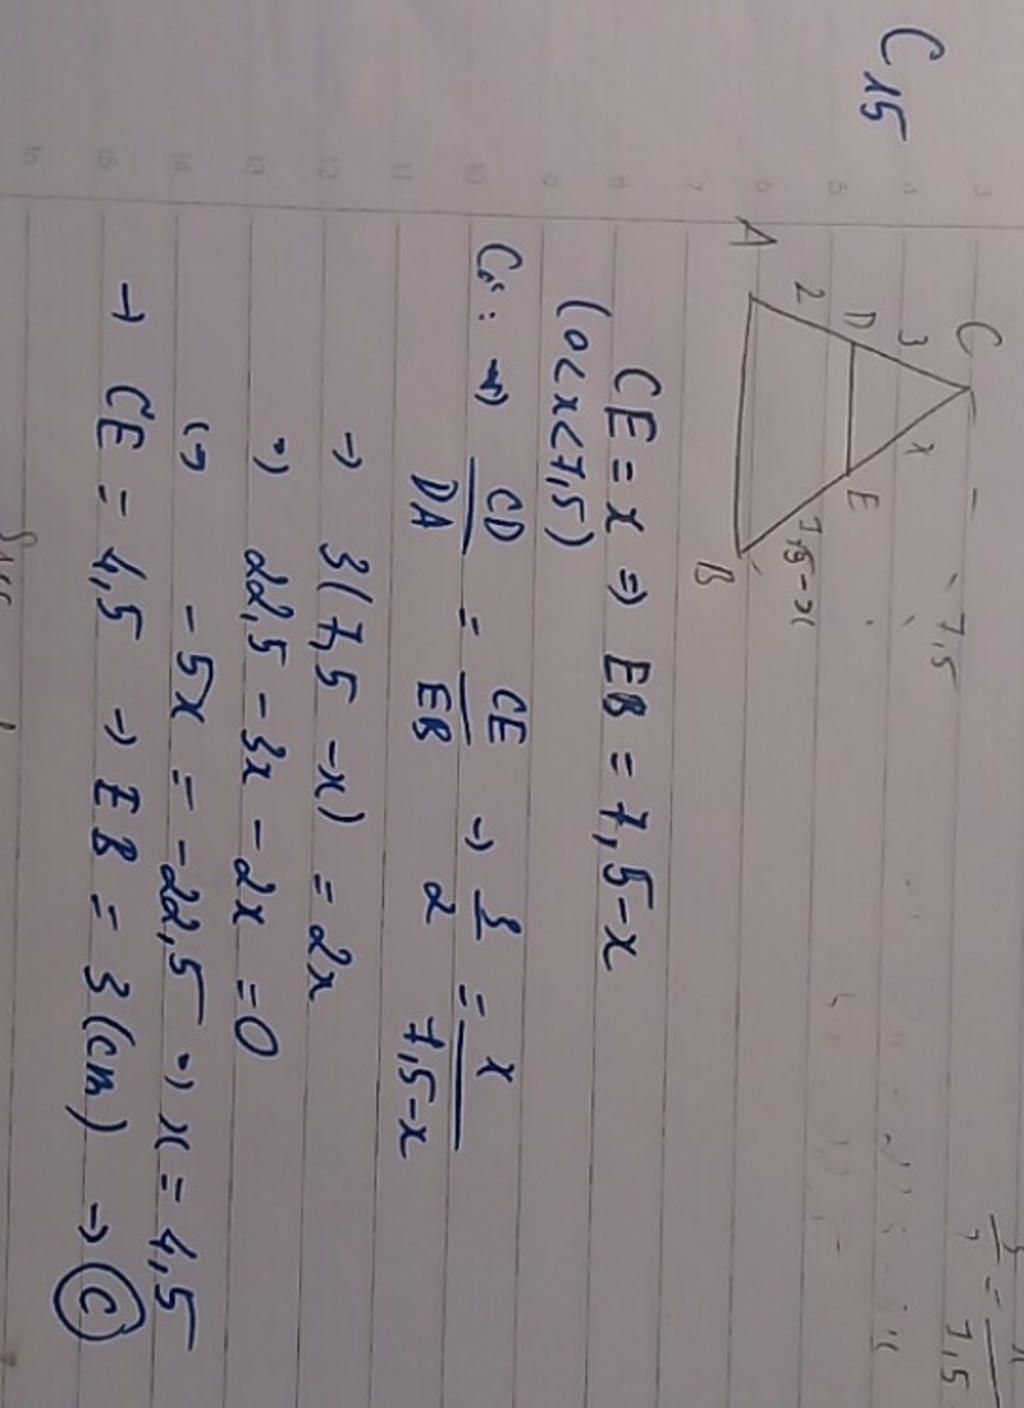 C15
C
7,5
3
x
D
E
2
7,5-x
A
B
CE = x => EB = 7,5-x
(0<x<7,5)
CD/DA = CE/EB → 3/2 = x/7,5-x
→ 3(7,5-x) = 2x
22,5 - 3x - 2x = 0
- 5x = -22,5 x = 4,5
→ CE = 4,5 → EB = 3 (cm) → C